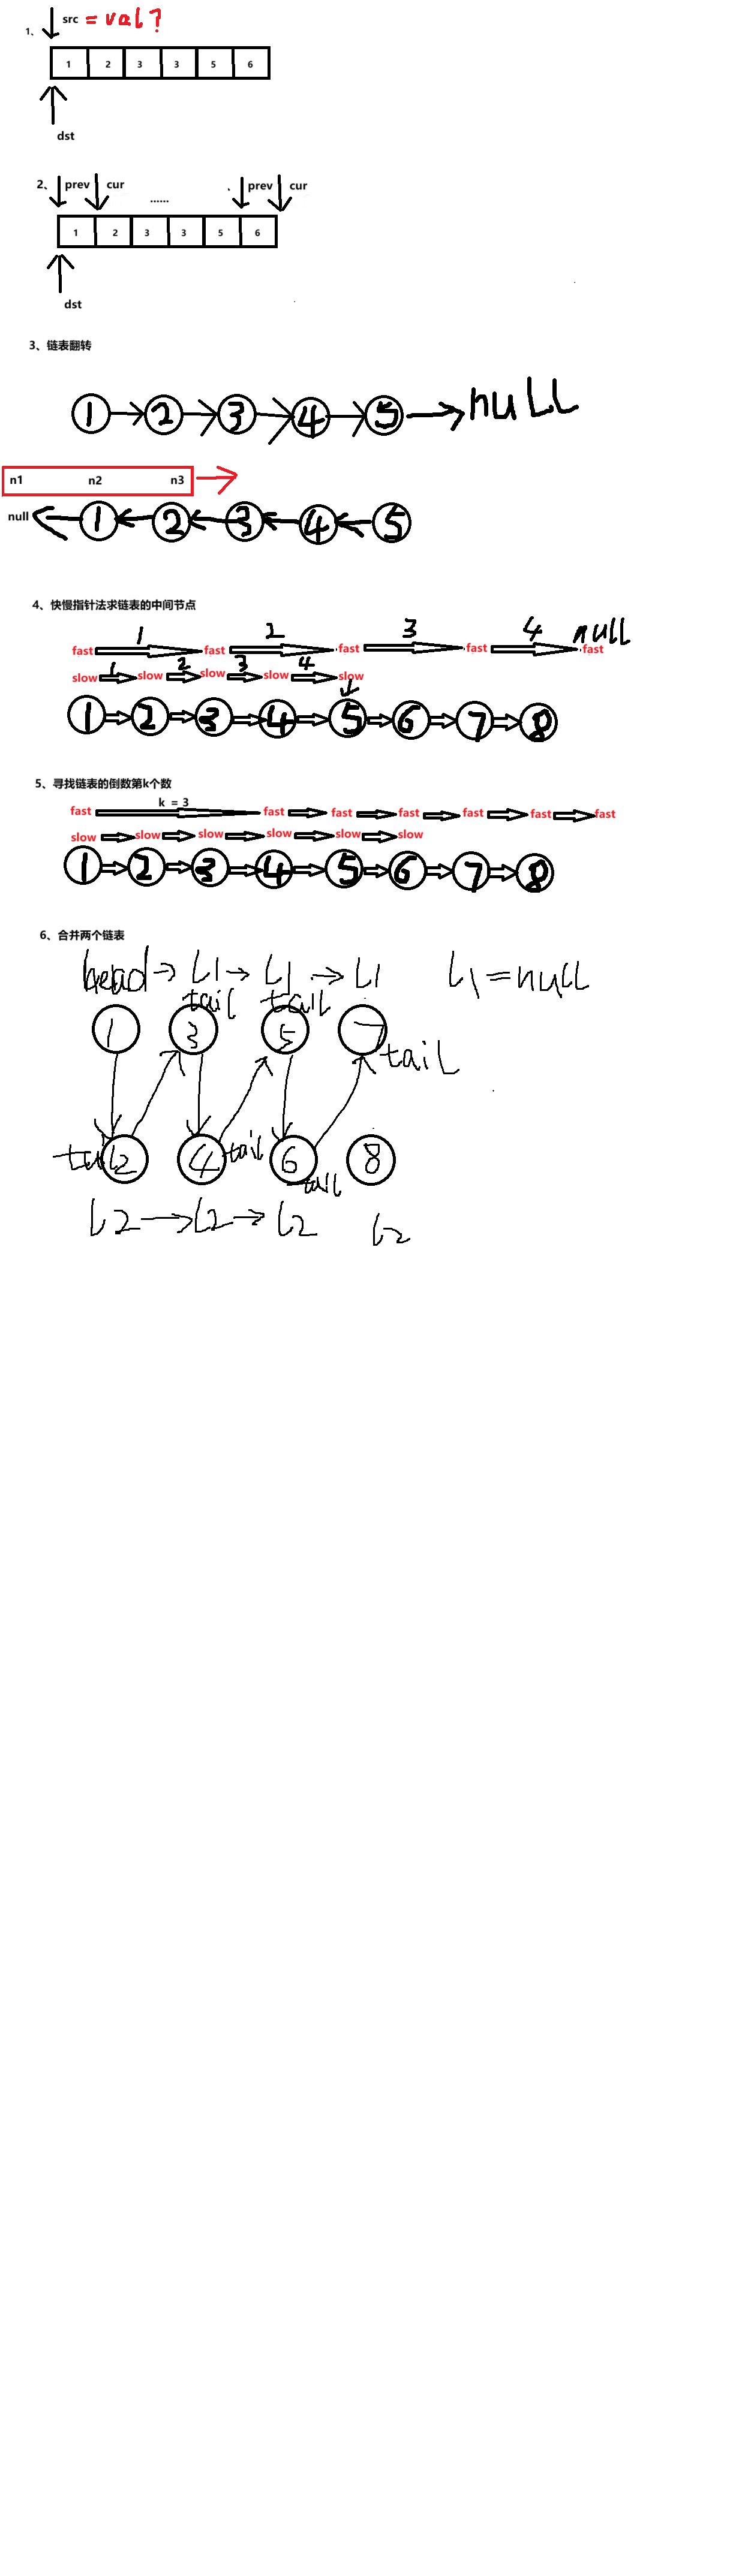 1、 src = val?
1 2 3 3 5 6
dst
2、 prev cur ...... 、 prev cur
1 2 3 3 5 6
dst
3、链表翻转
1 2 3 4 5 null
n1 n2 n3
null 1 2 3 4 5
4、快慢指针法求链表的中间节点
1 2 3 4 null
fast fast fast fast fast
1 2 3 4
slow slow slow slow slow
1 2 3 4 5 6 7 8
5、寻找链表的倒数第k个数
k = 3
fast fast fast fast fast fast fast
slow slow slow slow slow slow
1 2 3 4 5 6 7 8
6、合并两个链表
head L1 L1 L1 L1=null
tail tail
1 3 5 7
tail
tail 2 4 tail 6 8
tail
L2 L2 L2 L2